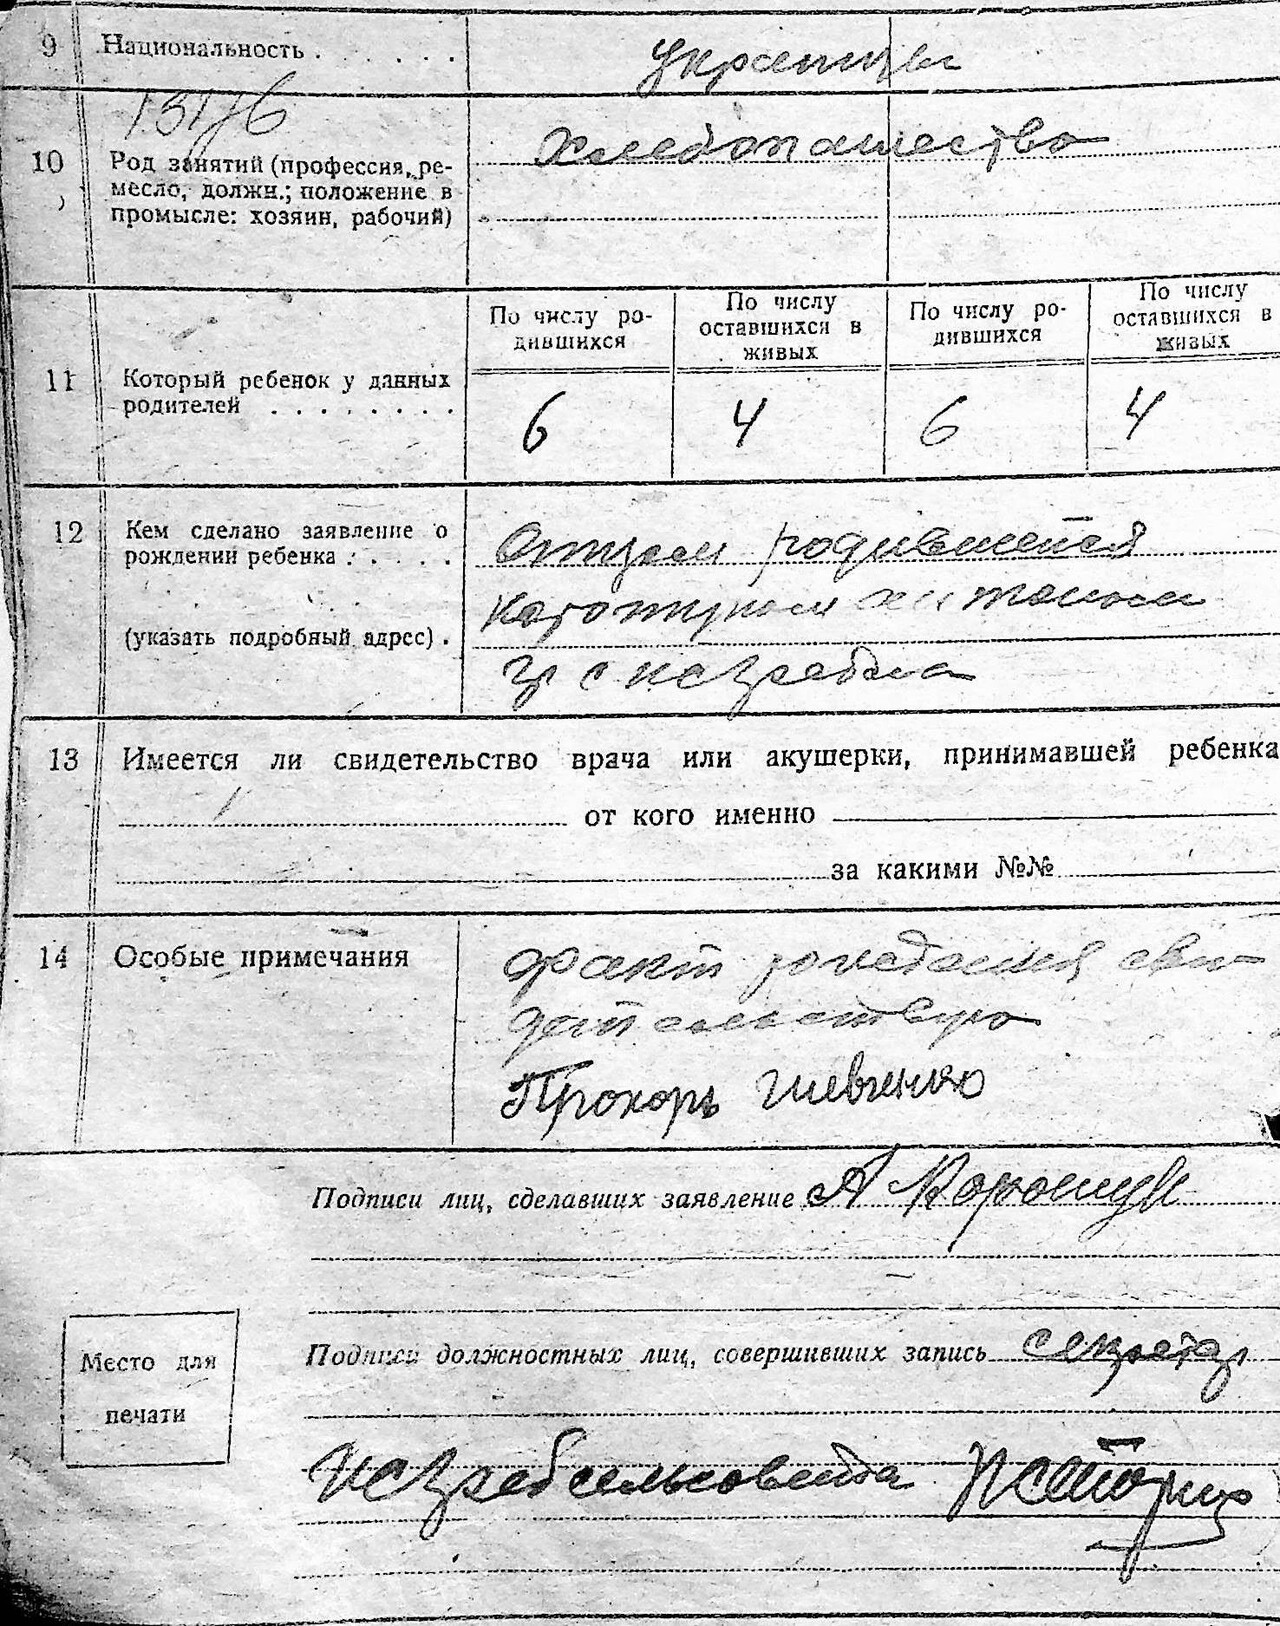 9 Национальность . . . . . . украинцы
13176
10 Род занятий (профессия, ре-
месло, должн.; положение в
промысле: хозяин, рабочий)
хлебопашество
По числу ро-
дившихся
По числу
оставшихся в
живых
По числу ро-
дившихся
По числу
оставшихся в
живых
11 Который ребенок у данных
родителей . . . . . . . .
6 4 6 4
12 Кем сделано заявление о
рождении ребенка . . . . .
(указать подробный адрес) .
Отцом родившейся
гр с
13 Имеется ли свидетельство врача или акушерки, принимавшей ребенка
от кого именно
за какими №№
14 Особые примечания
факт рождения сви
детельствую
Прокорь Шевченко
Подписи лиц, сделавших заявление А
Подписи должностных лиц, совершивших запись секретар
Место для
печати
сельсовета